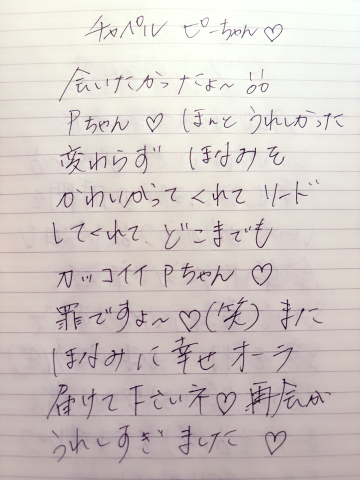 チャペル ピーちゃん♡
会いたかったよ〜
Pちゃん♡ ほんと うれしかった
変わらず ほなみを
かわいがって くれて リード
してくれて どこまでも
カッコイイ Pちゃん♡
罪ですよ〜♡(笑) また
ほなみに 幸せ オーラ
届けて 下さいネ♡ 再会が
うれしすぎ ました♡